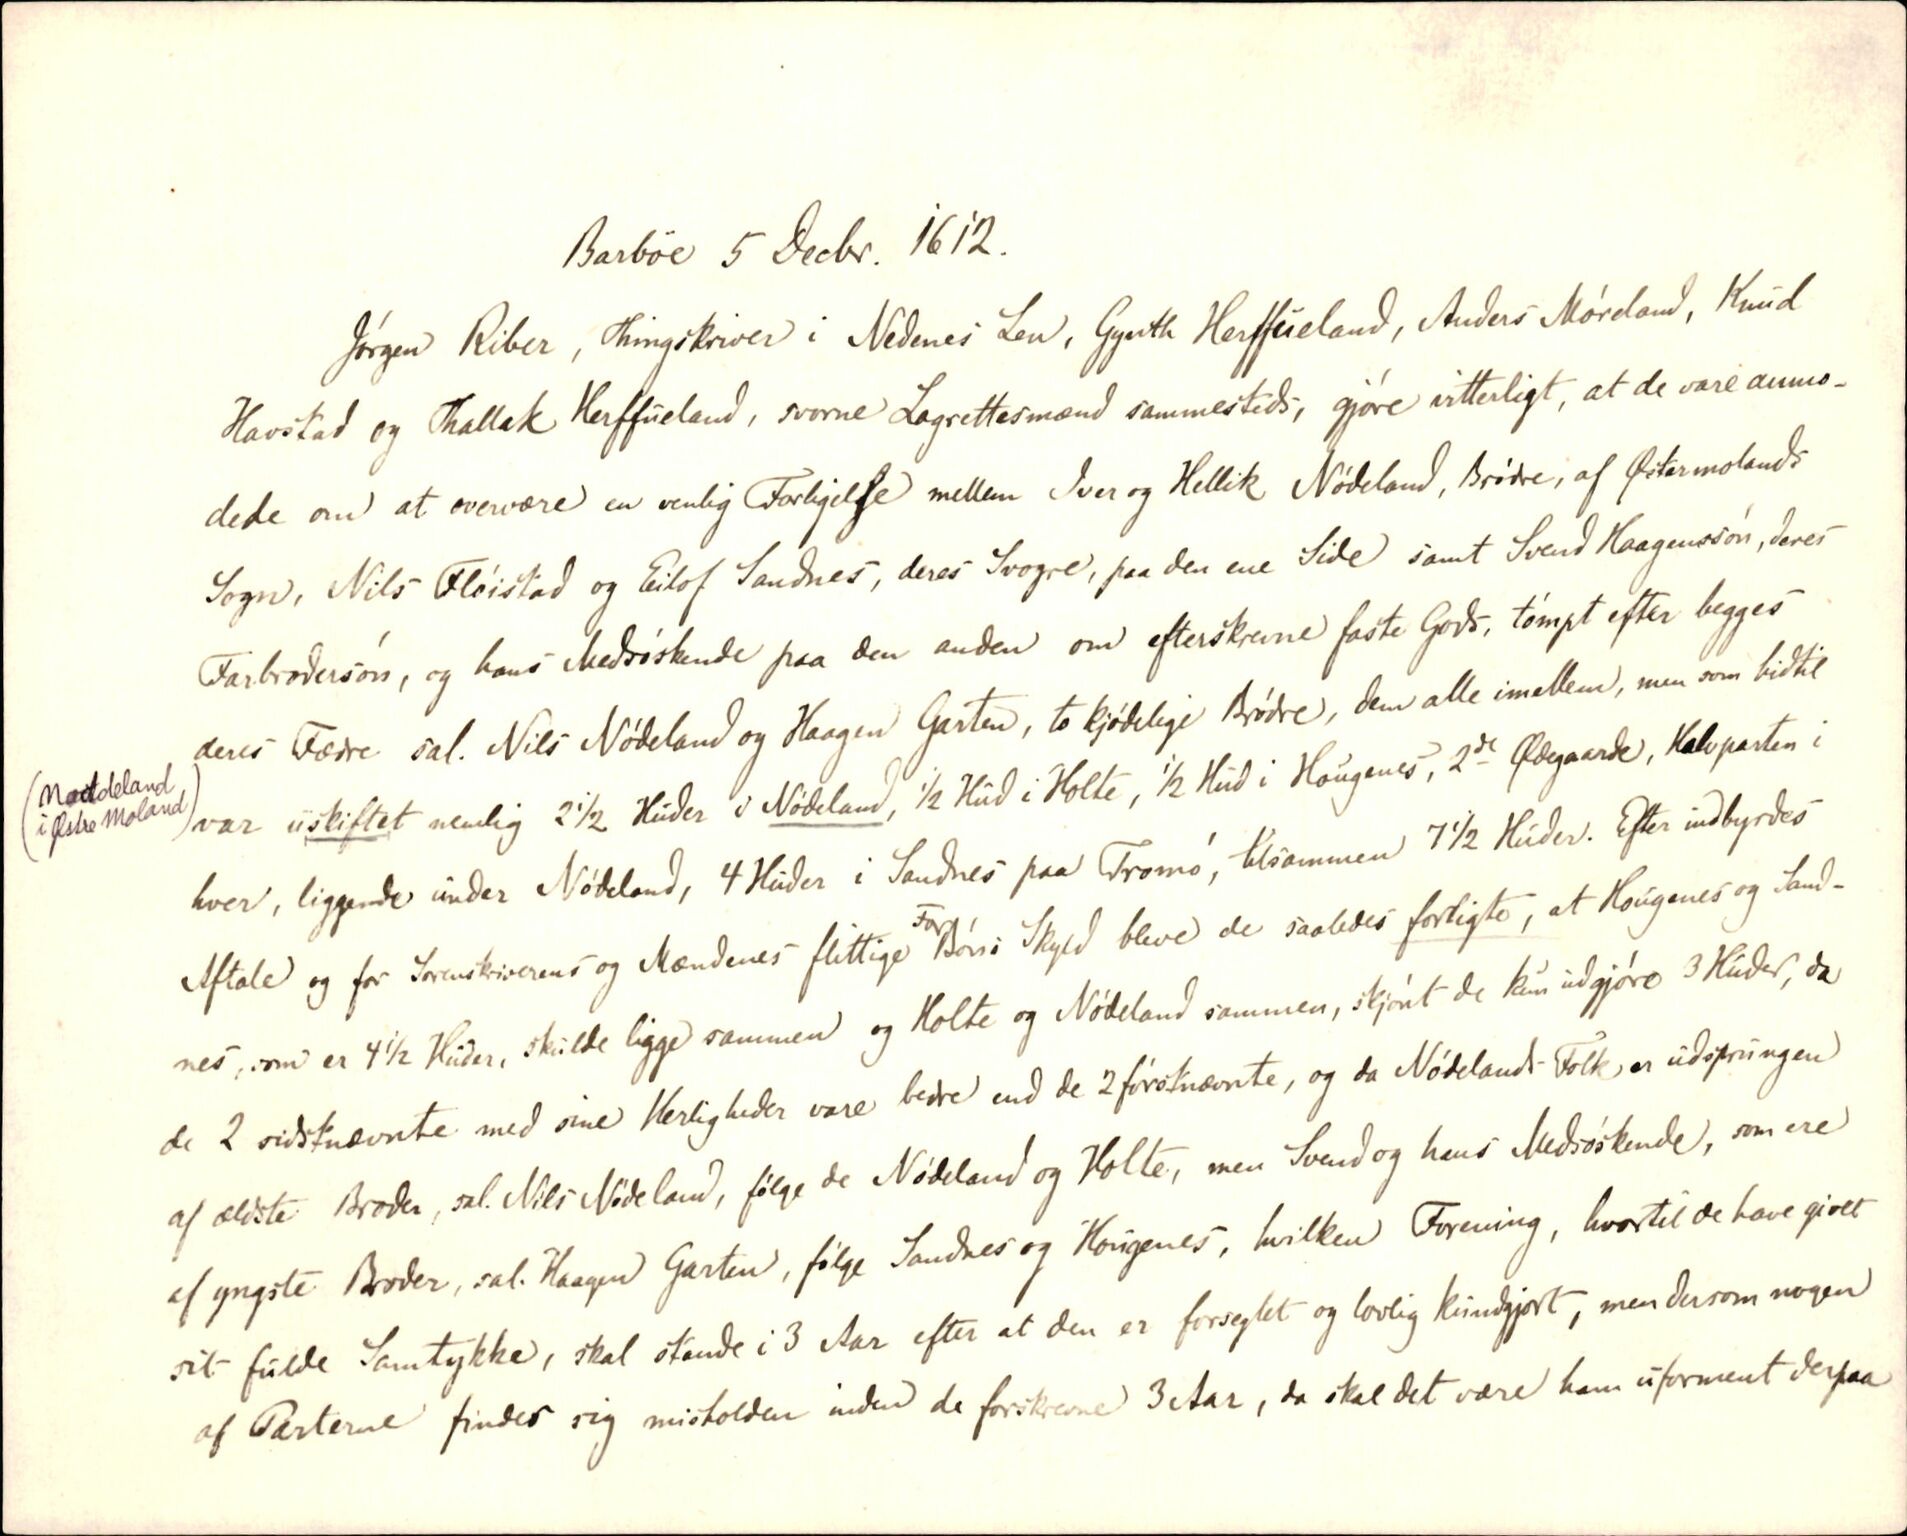 Barböe 5 Decbr. 1612.
Jörgen Riber, Thingskriver i Nedenes Len, Gynth Herffueland, Anders Möreland, Knud
Havstad og Thallak Herffueland, svorne Lagrettesmænd sammesteds, gjöre vitterligt, at de vare anmo-
dede om at overvære en venlig Forligelse mellem Iver og Hellik Nödeland, Brödre, af Østermolands
Sogn, Nils Flöistad og Eilof Sandnes, deres Svogre, paa den ene Side samt Svend Haagenssön, deres
Farbrodersön, og hans Medsöskende paa den anden om efterskrevne faste Gods, tömpt efter begges
deres Fædre sal. Nils Nödeland og Haagen Garten, to kjödelige Brödre, dem alle imellem, men som hidtil
(Nødeland
i Østre Moland)
var uskiftet nemlig 2 1/2 Huder i Nödeland, 1/2 Hud i Holte, 1/2 Hud i Hougenes, 2de Ødegaarde, Halvparten i
hver, liggende under Nödeland, 4 Huder i Sandnes paa Tromö, tilsammen 7 1/2 Huder. Efter indbyrdes
Aftale og for Sorenskriverens og Mændenes flittige ForBöns Skyld bleve de saaledes forligte, at Hougenes og Sand-
nes, som er 4 1/2 Huder, skulde ligge sammen og Holte og Nödeland sammen, skjönt de kun udgjöre 3 Huder, da
de 2 sidstnævnte med sine Herligheder vare bedre end de 2 förstnævnte, og da Nödelands Folk er udsprungen
af ældste Broder, sal. Nils Nödeland, fölge de Nödeland og Holte, men Svend og hans Medsöskende, som ere
af yngste Broder, sal. Haagen Garten, fölge Sandnes og Hougenes, hvilken Forening, hvortil de have givet
sit fulde Samtykke, skal stande i 3 Aar efter at den er forseglet og lovlig kundgjort, men dersom nogen
af Parterne findes sig misholden inden de forskrevne 3 Aar, da skal det være ham uforment derpaa